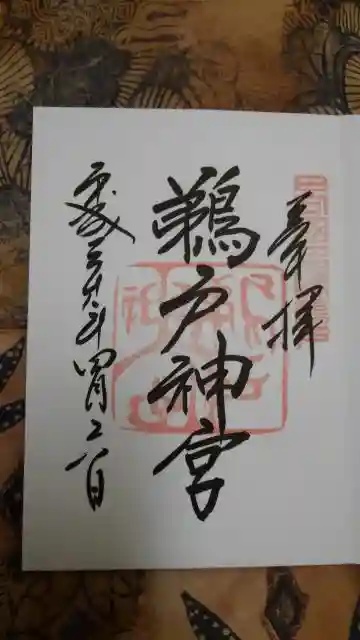 奉拝
鵜戸神宮
平成三十年四月二八日